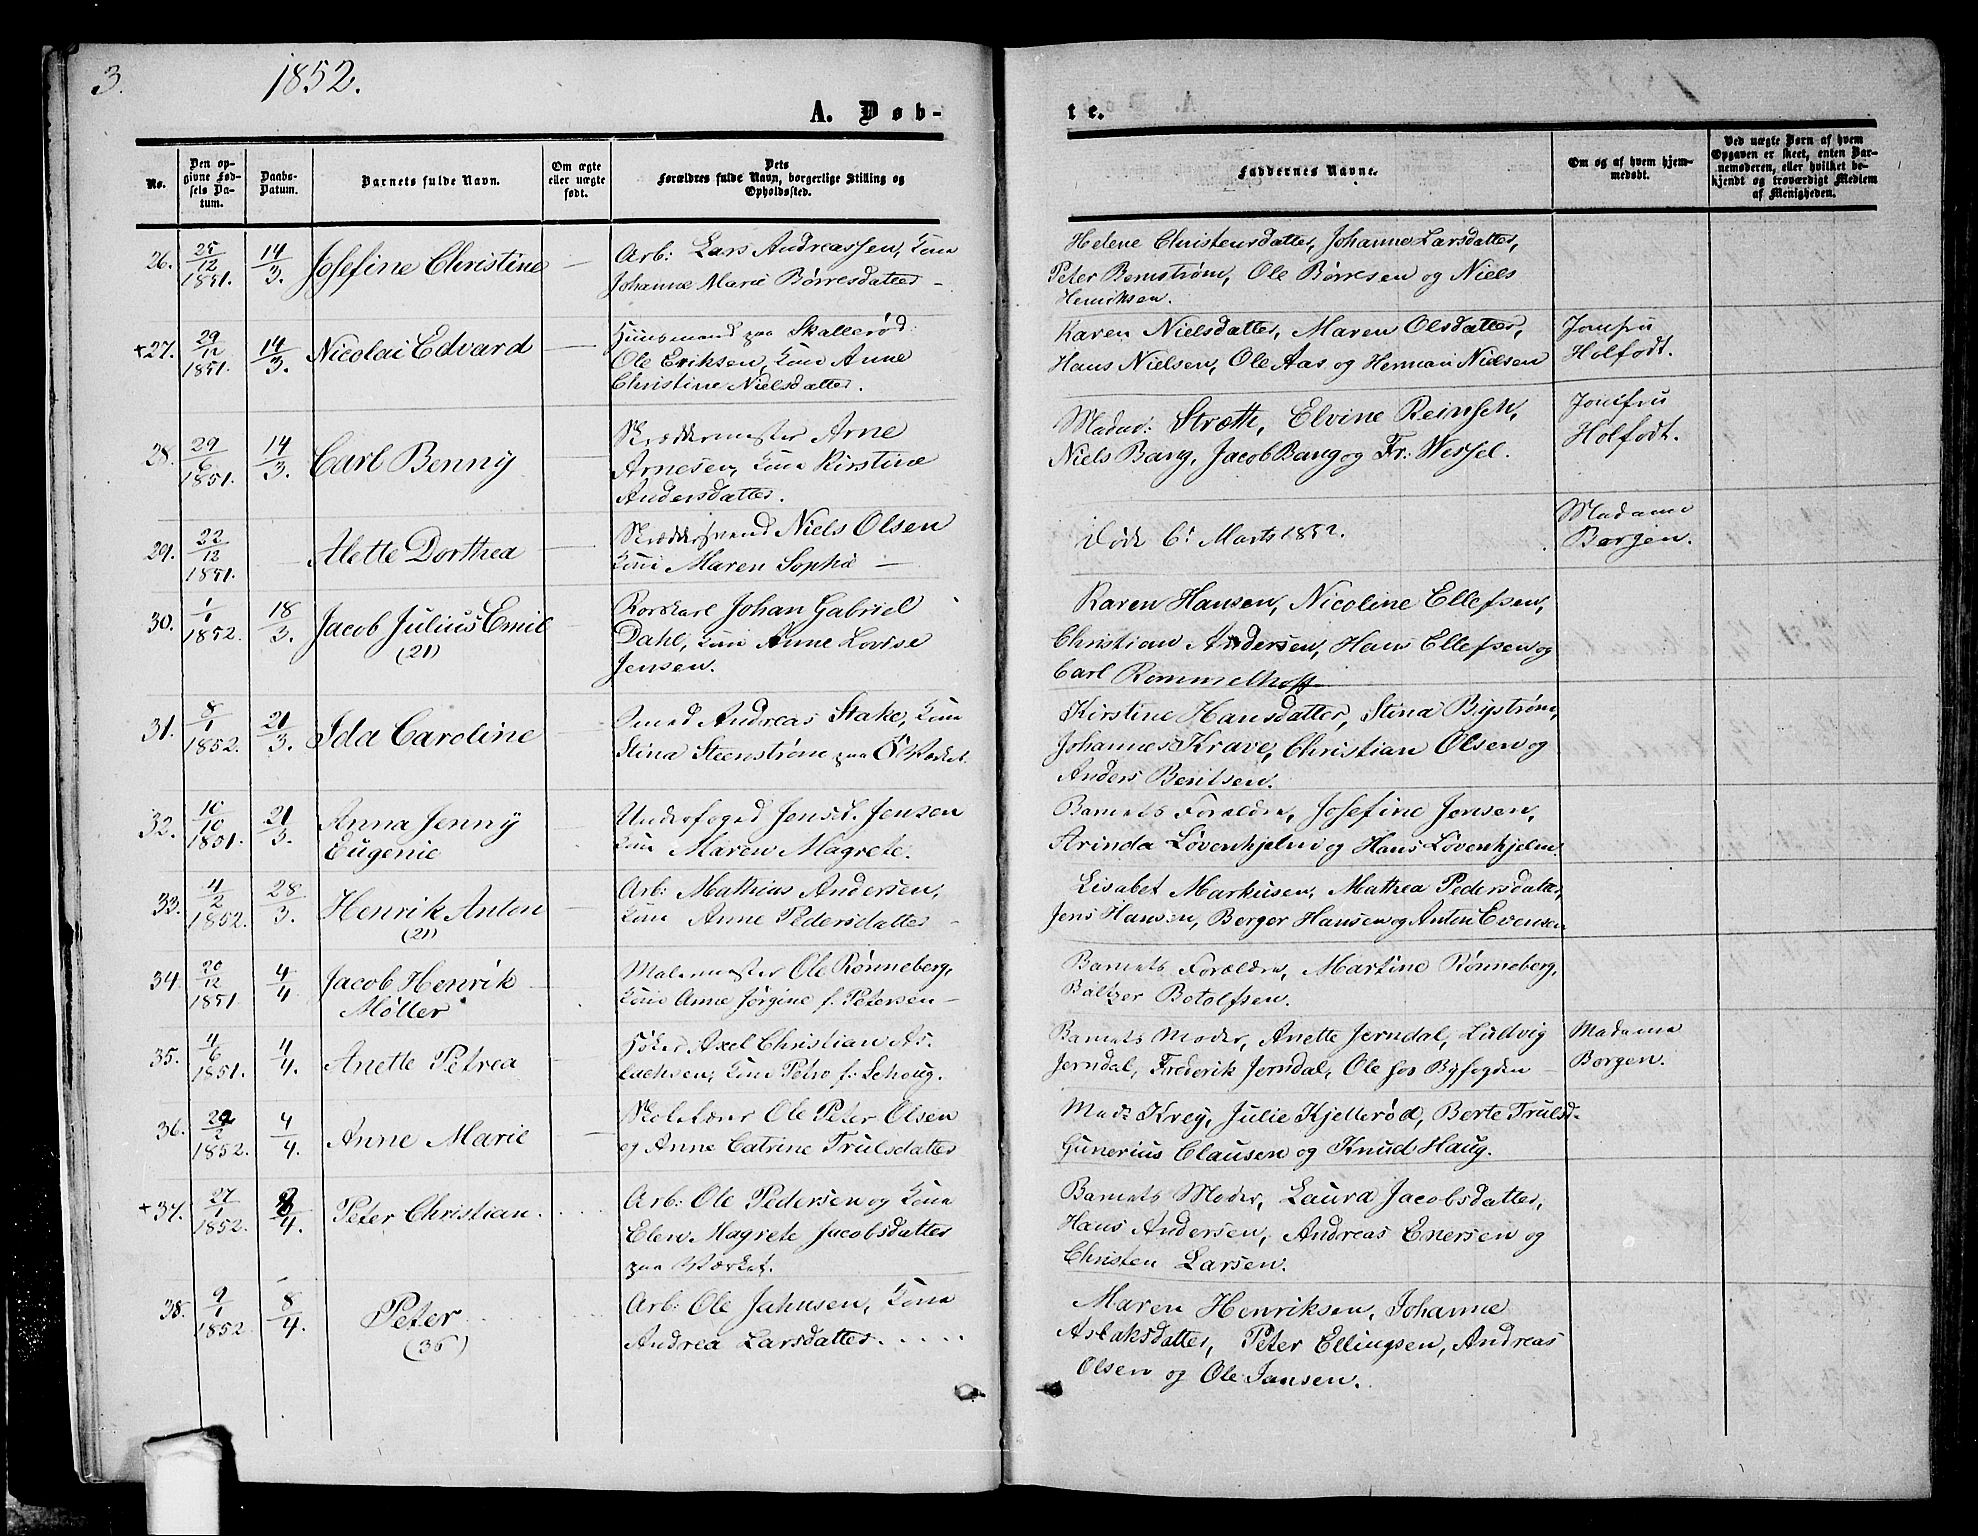 3.
1852.
A. Døb-
te.
No.
Den op-
givne Fød-
sels Da-
tum.
Daabs-
Datum.
Barnets fulde Navn.
Om ægte
eller uægte
født.
Dets
Forældres fulde Navn, borgerlige Stilling og
Opholdssted.
Faddernes Navne.
Om og af hvem hjem-
medøbt.
Ved uægte Børn af hvem
Opgaven er skeet, enten Bar-
nemoderen, eller hvilket be-
kjendt og troværdigt Medlem
af Menigheden.
26. 25/12 1851. 14/3. Josefine Christine —
Arb: Lars Andreassen, Kone
Johanne Marie Børresdatter —
Helene Christensdatter, Johanne Larsdatter,
Peter Bernstrøm, Ole Børresen og Niels
Henriksen.
+27. 29/12 1851. 14/3. Nicolai Edvard —
Huusmand paa Skallerød
Ole Eriksen, Kone Anne
Christine Nielsdatter.
Karen Nielsdatter, Maren Olsdatter,
Hans Nielsen, Ole Aas og Herman Nielsen
Jomfru
Holfodt.
28. 29/6 1851. 14/3. Carl Benny —
Skræddermester Arne
Arnesen, Kone Kirstine
Andersdatter.
Madm: Stræth, Elvine Reinsch,
Niels Bang, Jacob Bang og Fr: Wessel.
Jomfru
Holfodt.
29. 22/12 1851. — Alette Dorthea —
Skræddersvend Niels Olsen
Kone Maren Sophie —
Døde 6: Marts 1852.
Madame
Borgen.
30. 1/1 1852. 18/3. Jacob Julius Emil
(21)
Rorskarl Johan Gabriel
Dahl, Kone Anne Lovise
Jensen.
Karen Hansen, Nicoline Ellefsen,
Christian Andersen, Hans Ellefsen og
Carl Rommelhoff
31. 8/1 1852. 21/3. Ida Caroline
Smed Andreas Stake, Kone
Stina Steenstrøm paa Ø: Værket.
Kirstine Hansdatter, Stina Bystrøm,
Johannes Krave, Christian Olsen og
Anders Beritsen.
32. 10/10 1851. 21/3. Anna Jenny
Eugenie
Underfoged Jens L. Jensen
Kone Maren Magrete.
Barnets Forældre, Josefine Jensen,
Arinda Løvenhjelm og Hans Løvenhjelm.
33. 4/2 1852. 28/3. Henrik Anton
(21)
Arb: Mathias Andersen,
Kone Anne Pedersdatter —
Lisabet Markusen, Mathea Pedersdatter,
Jens Hansen, Berger Hansen og Anton Evensen
34. 20/12 1851. 4/4. Jacob Henrik
Møller
Malermester Ole Rønneberg,
Kone Anne Jørgine f. Petersen —
Barnets Forældre, Martine Rønneberg,
Baltzer Botolfsen.
35. 4/6 1851. 4/4. Anette Petrea
Høker Axel Christian As-
lachsen, Kone Petro f: Schoug.
Barnets Moder, Anette Jerndal, Ludvig
Jerndal, Frederik Jerndal, Ole hos Byfogden
Madame
Borgen.
36. 1852. 4/4. Anne Marie —
Skolelærer Ole Peter Olsen
og Anne Catrine Trulsdatter
Mads Krey, Julie Kjellerød, Berte Trulsd.
Gunerius Clausen og Knud Haug.
+37. 27/1 1852. 8/4. Peter Christian
Arb: Ole Pedersen og Kone
Elen Magrete Jacobsdatter
paa Værket.
Barnets Moder, Laura Jacobsdatter,
Hans Andersen, Andreas Enersen og
Christen Larsen.
38. 9/1 1852. 8/4. Peter
(36)
Arb: Ole Jahnsen, Kone
Andrea Larsdatter.
Maren Henriksen, Johanne
Aslaksdatter, Peter Ellingsen, Andreas
Olsen og Ole Jansen.